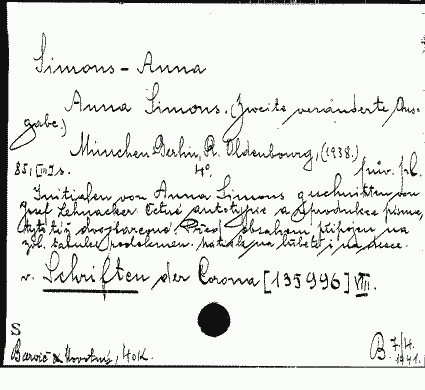 Simons - Anna
Anna Simons. (Zweite veränderte Aus-
gabe.)
München Berlin, R. Oldenbourg, (1938.)
85, s. 4° prův. pl.
Initialen von Anna Simons geschnitten von
Josef Lehnacker. Četné autotypie a reprodukce písma,
dvojbarevné. Před obsahem připojen na
zvl. tabulce
v. Schriften der Corona [135996] VIII.
S
Barvič & Novotný, 40K. B 7/4.
1941.